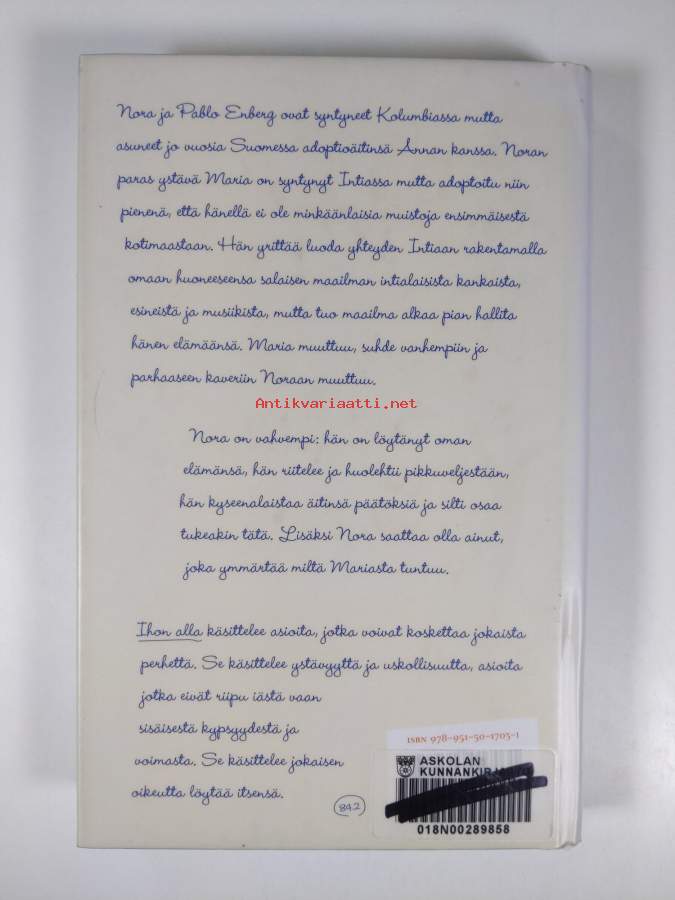 Nora ja Pablo Enberg ovat syntyneet Kolumbiassa mutta
asuneet jo vuosia Suomessa adoptioäitinsä Annan kanssa. Noran
paras ystävä Maria on syntynyt Intiassa mutta adoptoitu niin
pienenä, että hänellä ei ole minkäänlaisia muistoja ensimmäisestä
kotimaastaan. Hän yrittää luoda yhteyden Intiaan rakentamalla
omaan huoneeseensa salaisen maailman intialaisista kankaista,
esineistä ja musiikista, mutta tuo maailma alkaa pian hallita
hänen elämäänsä. Maria muuttuu, suhde vanhempiin ja
parhaaseen kaveriin Noraan muuttuu.
Antikvariaatti.net
Nora on vahvempi: hän on löytänyt oman
elämänsä, hän riitelee ja huolehtii pikkuveljestään,
hän kyseenalaistaa äitinsä päätöksiä ja silti osaa
tukeakin tätä. Lisäksi Nora saattaa olla ainut,
joka ymmärtää miltä Mariasta tuntuu.
Ihon alla käsittelee asioita, jotka voivat koskettaa jokaista
perhettä. Se käsittelee ystävyyttä ja uskollisuutta, asioita
jotka eivät riipu iästä vaan
sisäisestä kypsyydestä ja
voimasta. Se käsittelee jokaisen
oikeutta löytää itsensä.
ISBN 978-951-50-1705-1
ASKOLAN
018N00289858
84.2